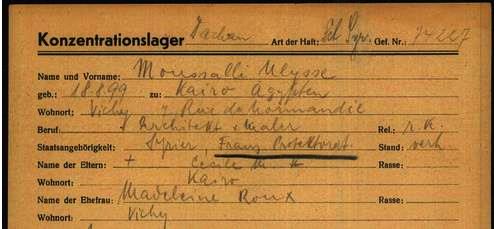 Konzentrationslager Dachau Art der Haft: Sch Syr. Gef. Nr.: 74227
Name und Vorname: Moussalli Ulysse
geb.: 18.8.99 zu: Kairo Ägypten
Wohnort: Vichy Rue de Normandie
Beruf: Architekt u Maler Rel.: r.k.
Staatsangehörigkeit: Syrier, Franz Protektorat Stand: verh
Name der Eltern: + Cecile Rasse:
Wohnort: Kairo
Name der Ehefrau: Madeleine Roux Rasse:
Wohnort: Vichy